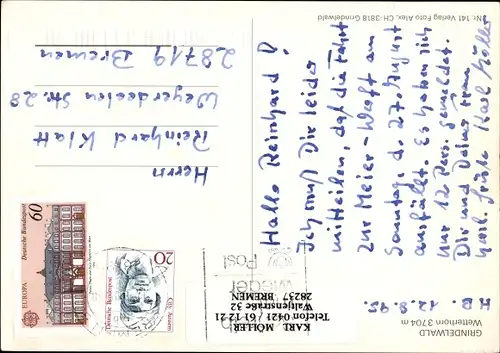 Nr. 141 Verlag Foto Alex, CH-3818 Grindelwald
Hallo Reinhard!
Ich muß Dir leider
mitteilen, daß die Fahrt
zur Meier-Werft am
Sonntag, d. 27. August
ausfällt. Es haben sich
nur 12 Pers. gemeldet.
Dir und Deiner Frau
herzl. Grüße Karl Möller
H.B. 12.8.95
GRINDELWALD
Wetterhorn 3704 m
Herrn
Reinhard Klatt
Weyerdeelen Str. 28
28719 Bremen
Deutsche Bundespost 60
EUROPA
20
Deutsche Bundespost
Cilly Aussem
Post
wieder
KARL MÖLLER
Telefon 0421 / 61 12 21
Waljenstraße 32
28237 BREMEN